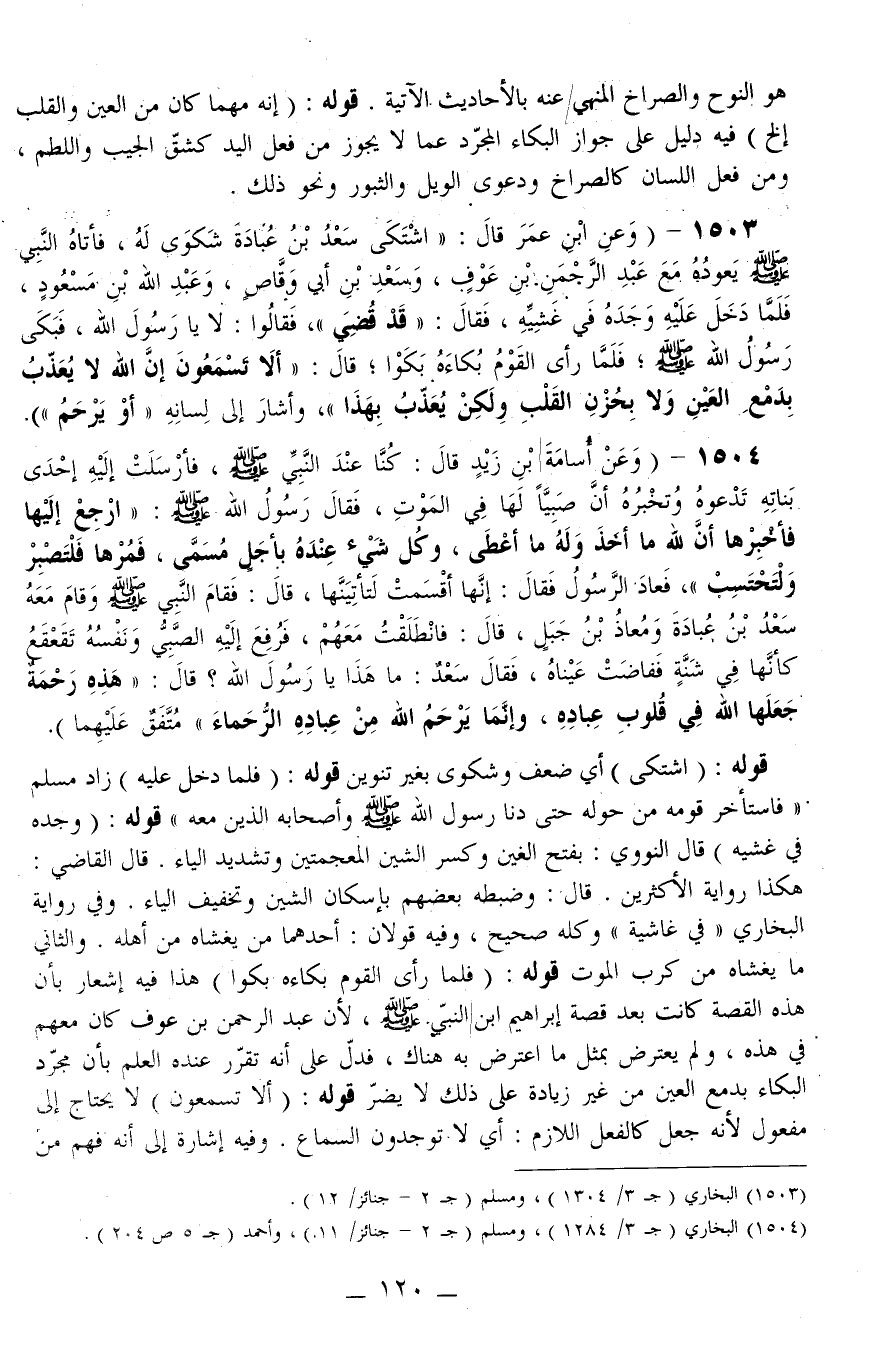 هو النوح والصراخ المنهي عنه بالأحاديث الآتية . قوله : ( إنه مهما كان من العين والقلب
إلخ ) فيه دليل على جواز البكاء المجرّد عما لا يجوز من فعل اليد كشقّ الجيب واللطم ،
ومن فعل اللسان كالصراخ ودعوى الويل والثبور ونحو ذلك .
١٥٠٣ – ( وَعَنِ ابْنِ عمَرَ قالَ : « اشْتَكَى سَعْدُ بْنُ عُبَادَةَ شَكوَى لَهُ ، فأتاهُ النَّبِي
ﷺ يَعودُهُ مَعَ عَبْدِ الرَّحْمَنِ بْنِ عَوْفٍ ، وَسَعْدِ بْنِ أبي وَقَّاصٍ ، وَعَبْدِ الله بْنِ مَسْعُودٍ ،
فَلَمَّا دَخَلَ عَلَيْهِ وَجَدَهُ فَي غَشيِّهِ ، فَقالَ : « قَدْ قُضِيَ »، فَقَالُوا : لا يا رَسُولَ الله ، فَبَكَى
رَسُولُ الله ﷺ ؛ فَلَمَّا رأى القَوْمُ بُكاءَهُ بَكَوْا ؛ قالَ : « ألَا تَسْمَعُونَ إنَّ الله لا يُعَذِّبُ
بِدَمْعِ العَيْنِ وَلا بِحُزْنِ القَلْبِ وِلَكِنْ يُعَذِّبُ بِهَذَا »، وأشارَ إلى لِسانِهِ « أوْ يَرْحَمُ »).
١٥٠٤ – ( وَعَنْ أُسامَةَ بْنِ زَيْدٍ قالَ : كُنَّا عنْدَ النَّبِيِّ ﷺ ، فأرْسَلَتْ إلَيْهِ إحْدَى
بَناتِهِ تَدْعوهُ وَتُخْبِرُهُ أنَّ صَبِيَّاً لَهَا فِي المَوْتِ ، فَقالَ رَسُولُ الله ﷺ : « ارْجِعْ إلَيْها
فأخْبِرْها أنَّ لله ما أخذَ وَلَهُ ما أعْطَى ، وكُل شَيْء عِنْدَهُ بأجَلٍ مُسَمَّى ، فَمُرْها فَلْتَصْبِرْ
وَلْتَحْتَسِبْ »، فَعادَ الرَّسُولُ فَقالَ : إنَّها أقْسَمَتْ لَتأتِيَنَّها ، قالَ : فَقامَ النَّبِي ﷺ وَقامَ مَعَهُ
سَعْدُ بْنُ عُبادَةَ وَمُعاذُ بْنُ جَبَلٍ ، قالَ : فانْطَلَقْتُ مَعَهُمْ ، فَرُفِعَ إلَيْهِ الصَّبِيُّ وَنَفْسُهُ تَقَعْقَعُ
كأنَّها فِي شَنَّةٍ فَفاضَتْ عَيْناهُ ، فَقالَ سَعْدٌ : ما هَذَا يا رَسُولَ الله ؟ قالَ : « هَذِهِ رَحْمَةٌ
جَعَلَها الله فِي قُلوبِ عِبادِهِ ، وإنَّمَا يَرْحَمُ الله مِنْ عِبادِهِ الرُّحَماءَ » مُتَّفَقٌ عَلَيْهِما ).
قوله : ( اشتكى ) أي ضعف وشكوى بغير تنوين قوله : ( فلما دخل عليه ) زاد مسلم
« فاستأخر قومه من حوله حتى دنا رسول الله ﷺ وأصحابه الذين معه » قوله : ( وجده
في غشيه ) قال النووي : بفتح الغين وكسر الشين المعجمتين وتشديد الياء . قال القاضي :
هكذا رواية الأكثرين . قال : وضبطه بعضهم بإسكان الشين وتخفيف الياء . وفي رواية
البخاري « في غاشية » وكله صحيح ، وفيه قولان : أحدهما من يغشاه من أهله . والثاني
ما يغشاه من كرب الموت قوله : ( فلما رأى القوم بكاءه بكوا ) هذا فيه إشعار بأن
هذه القصة كانت بعد قصة إبراهيم ابن النبيّ ﷺ ، لأن عبد الرحمن بن عوف كان معهم
في هذه ، ولم يعترض بمثل ما اعترض به هناك ، فدلّ على أنه تقرّر عنده العلم بأن مجرّد
البكاء بدمع العين من غير زيادة على ذلك لا يضرّ قوله : ( ألا تسمعون ) لا يحتاج إلى
مفعول لأنه جعل كالفعل اللازم : أي لا توجدون السماع . وفيه إشارة إلى أنه فهم من
(١٥٠٣) البخاري ( جـ ٣/ ١٣٠٤ ) ، ومسلم ( جـ ٢ – جنائز/ ١٢ ) .
(١٥٠٤) البخاري ( جـ ٣/ ١٢٨٤ ) ، ومسلم ( جـ ٢ – جنائز/ ١١ ) ، وأحمد ( جـ ٥ ص ٢٠٤ ) .
– ١٢٠ –